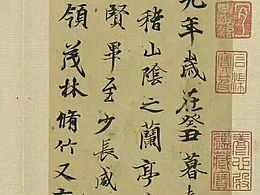 九年歲在癸丑暮
稽山陰之蘭亭
賢畢至少長咸
領茂林脩竹又